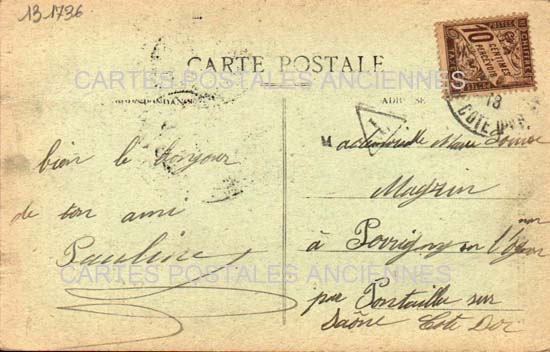 13.1736
CARTE POSTALE
CARTES POSTALES ANCIENNES
CORRESPONDANCE
ADRESSE
10
CENTIMES
A PERCEVOIR
18
COTE D'OR
T
bien le bonjour
de ton ami
Pauline
Mademoiselle Marie Louise
à
par Pontailler sur
Saône Côte Dor
CARTES POSTALES ANCIENNES